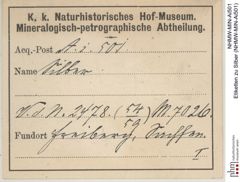 K. k. Naturhistorisches Hof-Museum.
Mineralogisch-petrographische Abtheilung.
Acq.-Post A. i. 501
Name Silber
V. d. N. 2478. (54/59) M 7026
Fundort Freiberg, Sachsen.
I
NHMW-MIN-A501
Etiketten zu Silber (NHMW-MIN-A501)